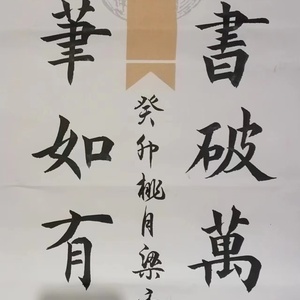 書破萬
筆如有
癸卯桃月梁